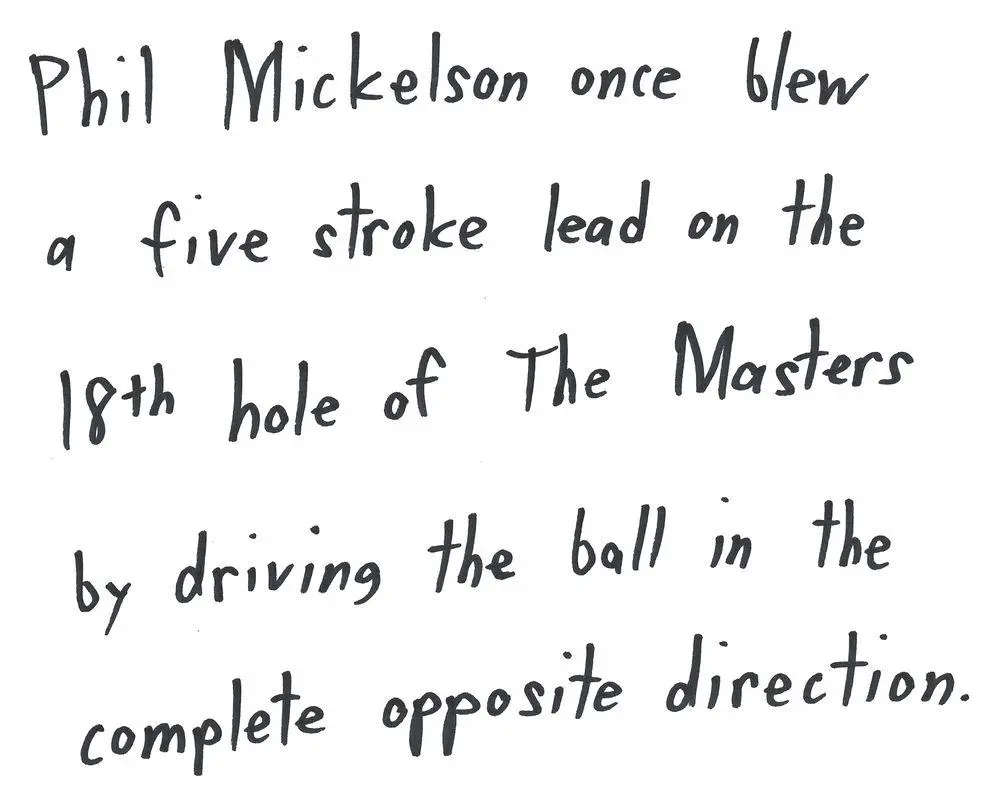 Phil Mickelson once blew
a five stroke lead on the
18th hole of The Masters
by driving the ball in the
complete opposite direction.